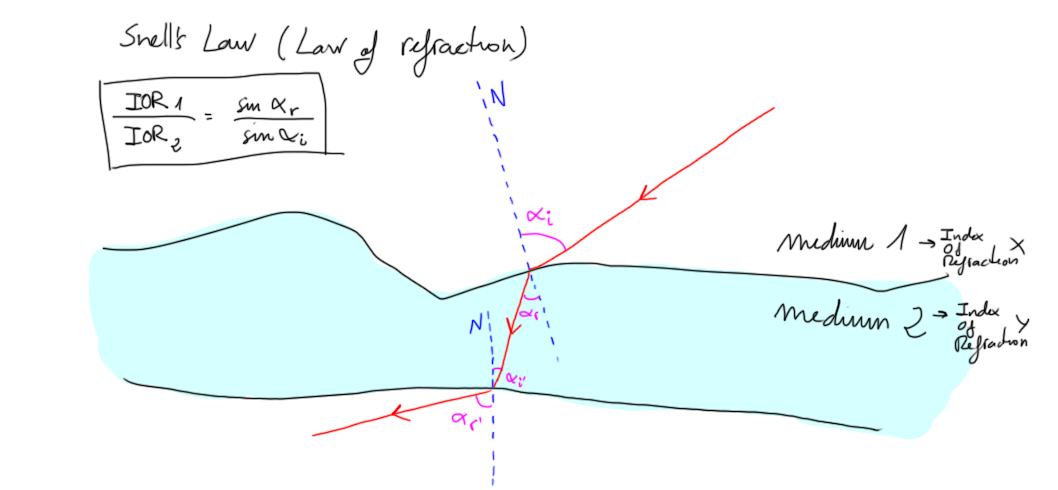 Snell's Law (Law of refraction)
IOR 1 / IOR 2 = sin αr / sin αi
N
αi
medium 1 → Index Of Refraction X
αr
medium 2 → Index Of Refraction Y
N
αi'
αr'